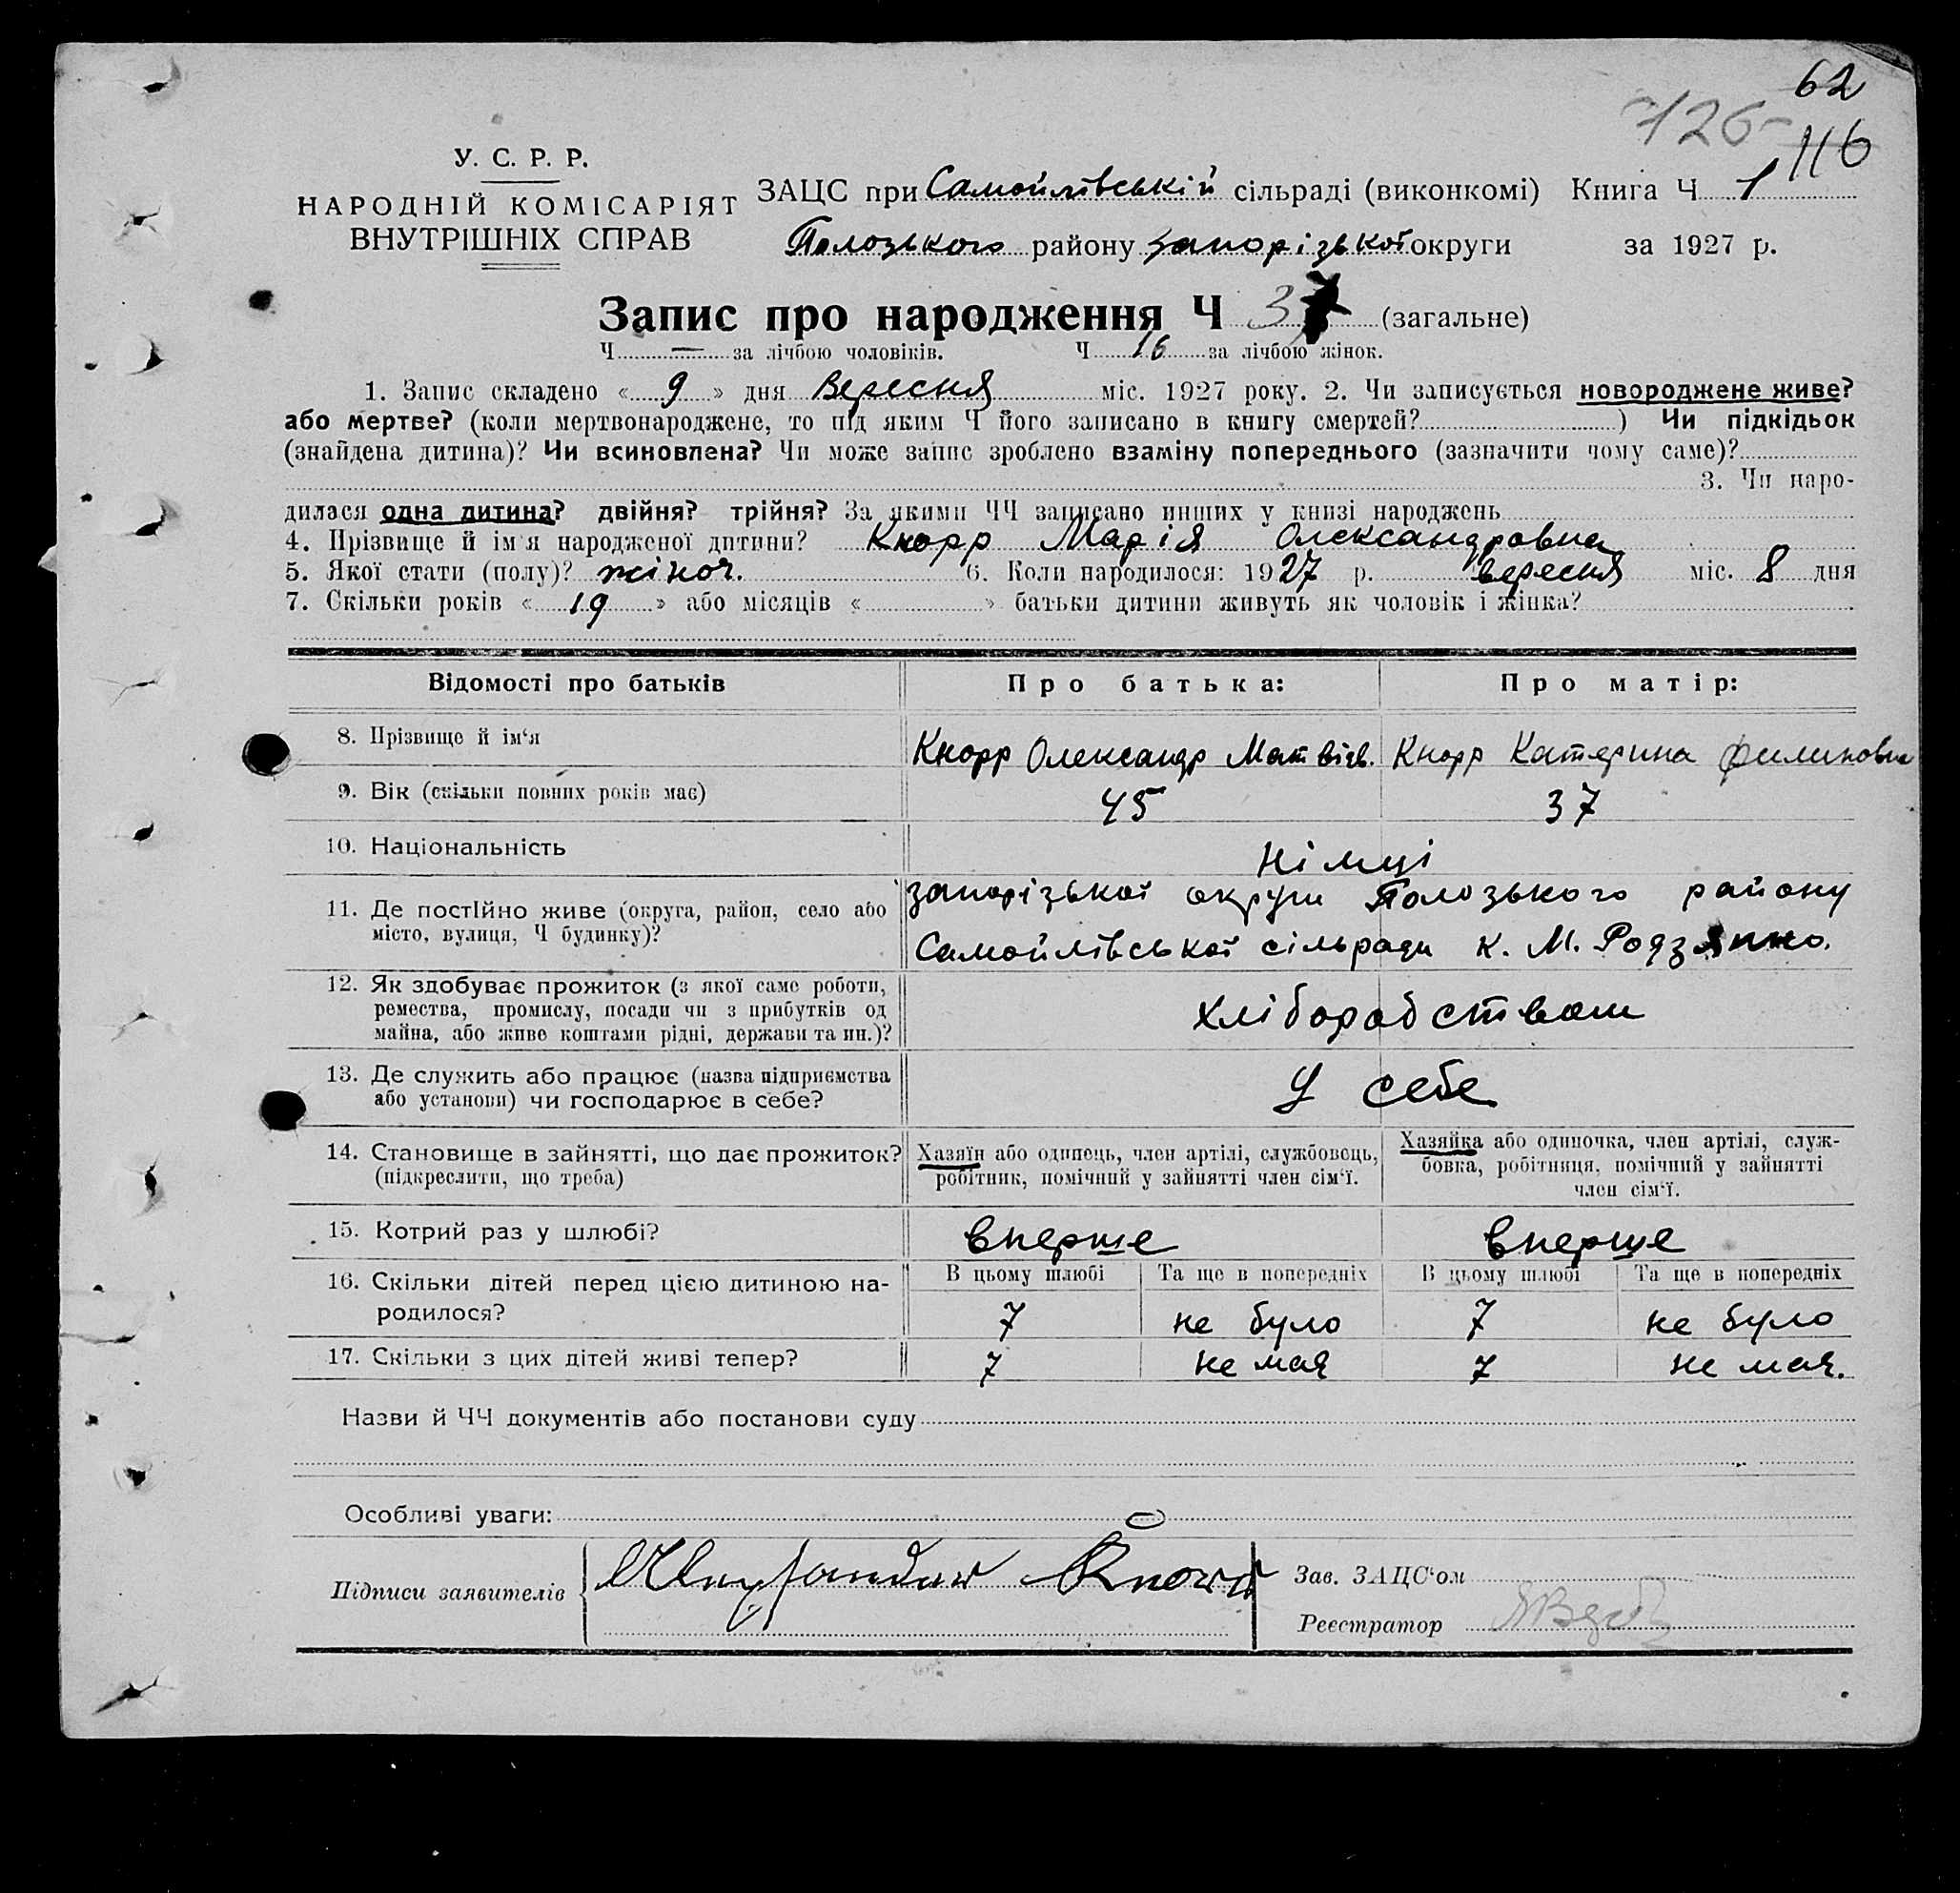 62
126
116
У. С. Р. Р.
НАРОДНІЙ КОМІСАРІЯТ
ВНУТРІШНІХ СПРАВ
ЗАЦС при Самойлівській сільраді (виконкомі) Книга Ч 1
Полозького району Запорізької округи за 1927 р.
Запис про народження Ч 37 (загальне)
Ч — за лічбою чоловіків. Ч 16 за лічбою жінок.
1. Запис складено « 9 » дня Вересня міс. 1927 року. 2. Чи записується новороджене живе?
або мертве? (коли мертвонароджене, то під яким Ч його записано в книгу смертей? ) Чи підкідьок
(знайдена дитина)? Чи всиновлена? Чи може запис зроблено взаміну попереднього (зазначити чому саме)?
3. Чи наро-
дилася одна дитина? двійня? трійня? За якими ЧЧ записано инших у книзі народжень
4. Прізвище й ім'я народженої дитини? Кнорр Марія Олександровна
5. Якої стати (полу)? жіноч. 6. Коли народилося: 1927 р. вересня міс. 8 дня
7. Скільки років « 19 » або місяців « » батьки дитини живуть як чоловік і жінка?
Відомості про батьків Про батька: Про матір:
8. Прізвище й ім'я Кнорр Олександр Матвієв. Кнорр Катерина Филиповна
9. Вік (скільки повних років має) 45 37
10. Національність Німці
11. Де постІйно живе (округа, район, село або
місто, вулиця, Ч будинку)?
Запорізької округи Полозького району
Самойлівської сільради к. М. Родзянко.
12. Як здобуває прожиток (з якої саме роботи,
ремества, промислу, посади чи з прибутків од
майна, або живе коштами рідні, держави та ин.)?
Хліборобством
13. Де служить або працює (назва підприємства
або установи) чи господарює в себе?
У себе
14. Становище в зайнятті, що дає прожиток?
(підкреслити, що треба)
Хазяїн або одинець, член артілі, службовець,
робітник, помічний у зайнятті член сім'ї.
Хазяйка або одиночка, член артілі, служ-
бовка, робітниця, помічний у зайнятті
член сім'ї.
15. Котрий раз у шлюбі? вперше вперше
16. Скільки дітей перед цією дитиною на-
родилося?
В цьому шлюбі Та ще в попередніх В цьому шлюбі Та ще в попередніх
7 не було 7 не було
17. Скільки з цих дітей живі тепер? 7 не має 7 не має.
Назви й ЧЧ документів або постанови суду
Особливі уваги:
Підписи заявителів Knorr
Зав. ЗАЦС'ом
Реєстратор